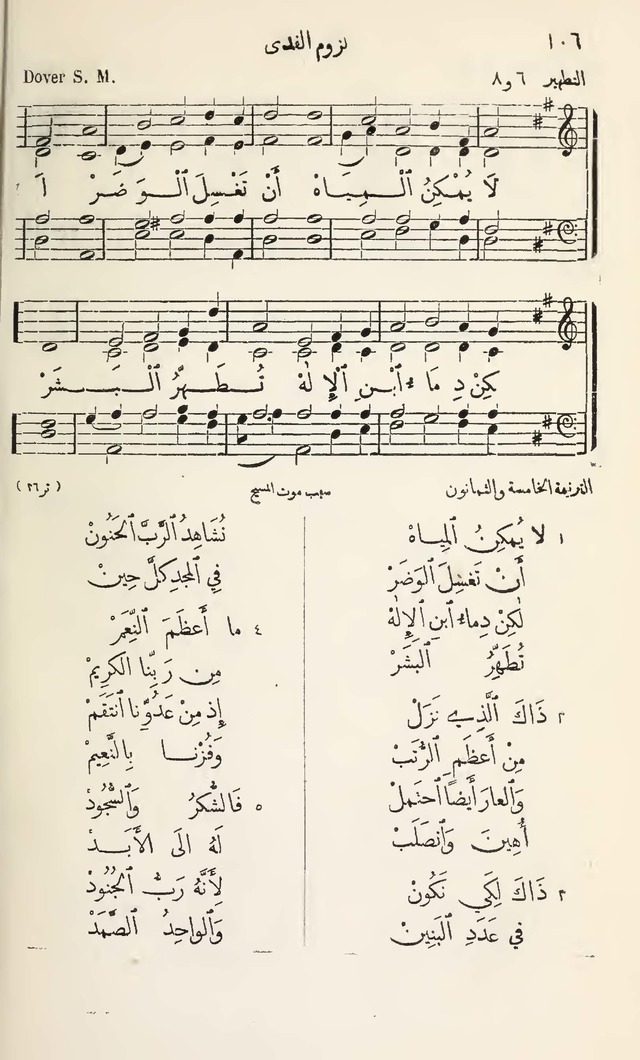 ١٠٦
لزوم الفدى
التطهير ٦ و ٨
Dover S. M.
لَا يُمْكِنُ ٱلْمِيَاهْ أَنْ تَغْسِلَ ٱلْوَضَرْ لَ
كِنْ دِمَاءُ ٱبْنِ ٱلْإِلٰهْ تُطَهِّرُ ٱلْبَشَرْ
الترنيمة الخامسة والثمانون
سبب موت المسيح
(تر ٢٦)
١ لا يُمكِنُ ٱلمِياهْ
أَنْ تَغسِلَ ٱلوَضَرْ
لٰكِنْ دِماءُ ٱبنِ ٱلإِلٰهْ
تُطَهِّرُ ٱلبَشَرْ
٢ ذَاكَ ٱلَّذِي نَزَلْ
مِنْ أَعظَمِ ٱلرُّتَبْ
وَٱلعارَ أَيضاً ٱحتَمَلْ
أُهِينَ وَٱنصَلَبْ
٣ ذَاكَ لِكَي نَكُونْ
في عَدَدِ ٱلبَنِينْ
نُشَاهِدُ ٱلرَّبَّ ٱلحَنُونْ
فِي ٱلمَجدِ كلَّ حِينْ
٤ ما أَعظَمَ ٱلنِّعَمْ
مِن رَبِّنا الكَرِيمْ
إِذ مِنْ عَدُوِّنا ٱنتَقَمْ
وَفُزْنا بِالنَّعِيمْ
٥ فَالشُّكرُ وَٱلسُّجُودْ
لَهُ الَى الأَبَدْ
لِأَنَّهُ رَبُّ ٱلجُنُودْ
وَٱلواحِدُ الصَّمَدْ